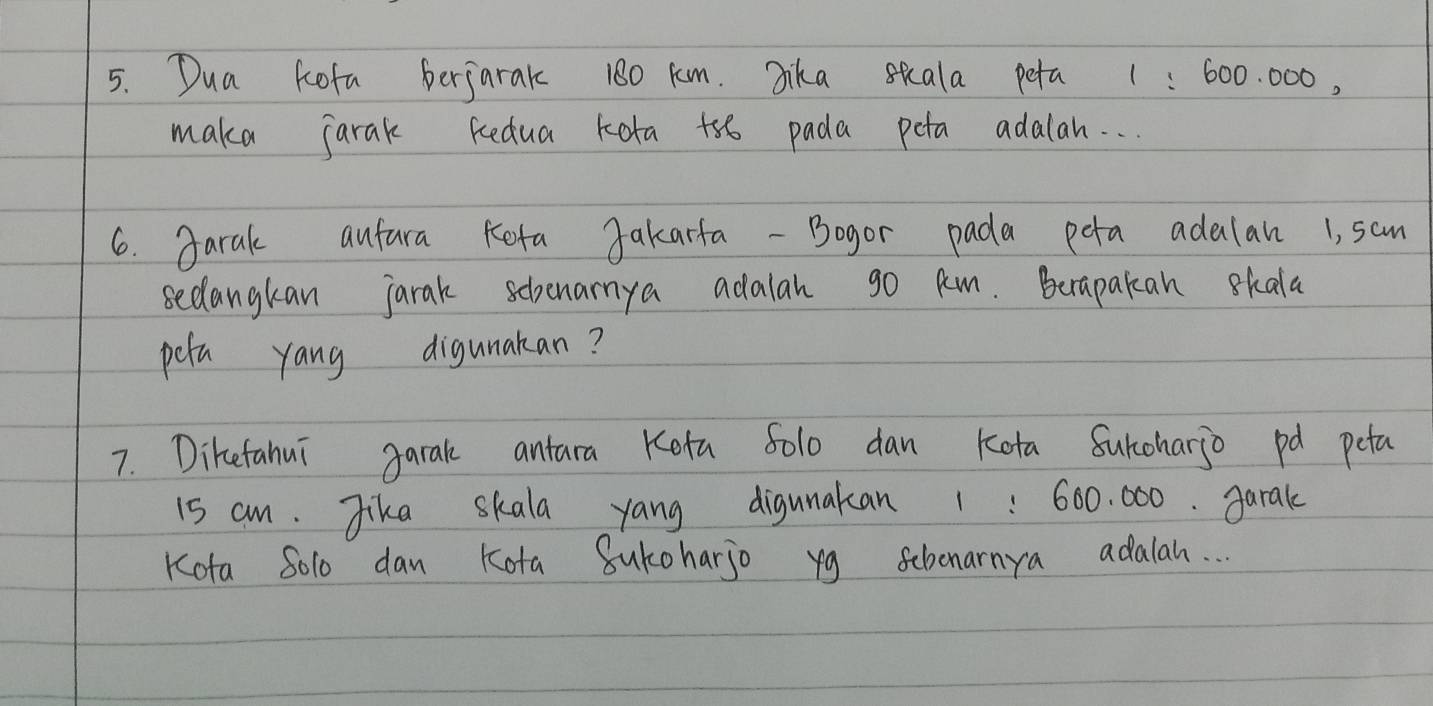 5. Dua kota berjarak 180 km. Jika skala peta 1 : 600.000,
maka jarak kedua kota tsb pada peta adalah...
6. Jarak antara kota Jakarta - Bogor pada peta adalah 1,5 cm
sedangkan jarak sebenarnya adalah 90 km. Berapakah skala
peta yang digunakan?
7. Diketahui jarak antara Kota Solo dan Kota Sukoharjo pd peta
15 cm. Jika skala yang digunakan 1 : 600.000. Jarak
Kota Solo dan Kota Sukoharjo yg sebenarnya adalah...